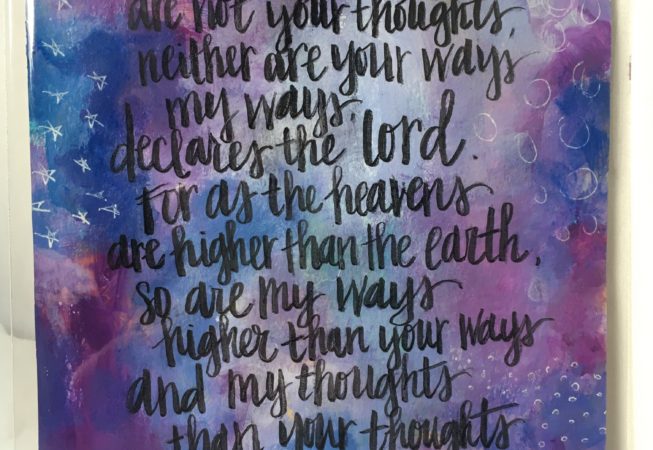 are not your thoughts,
neither are your ways
my ways,
declares the lord.
For as the heavens
are higher than the earth,
so are my ways
higher than your ways
and my thoughts
than your thoughts